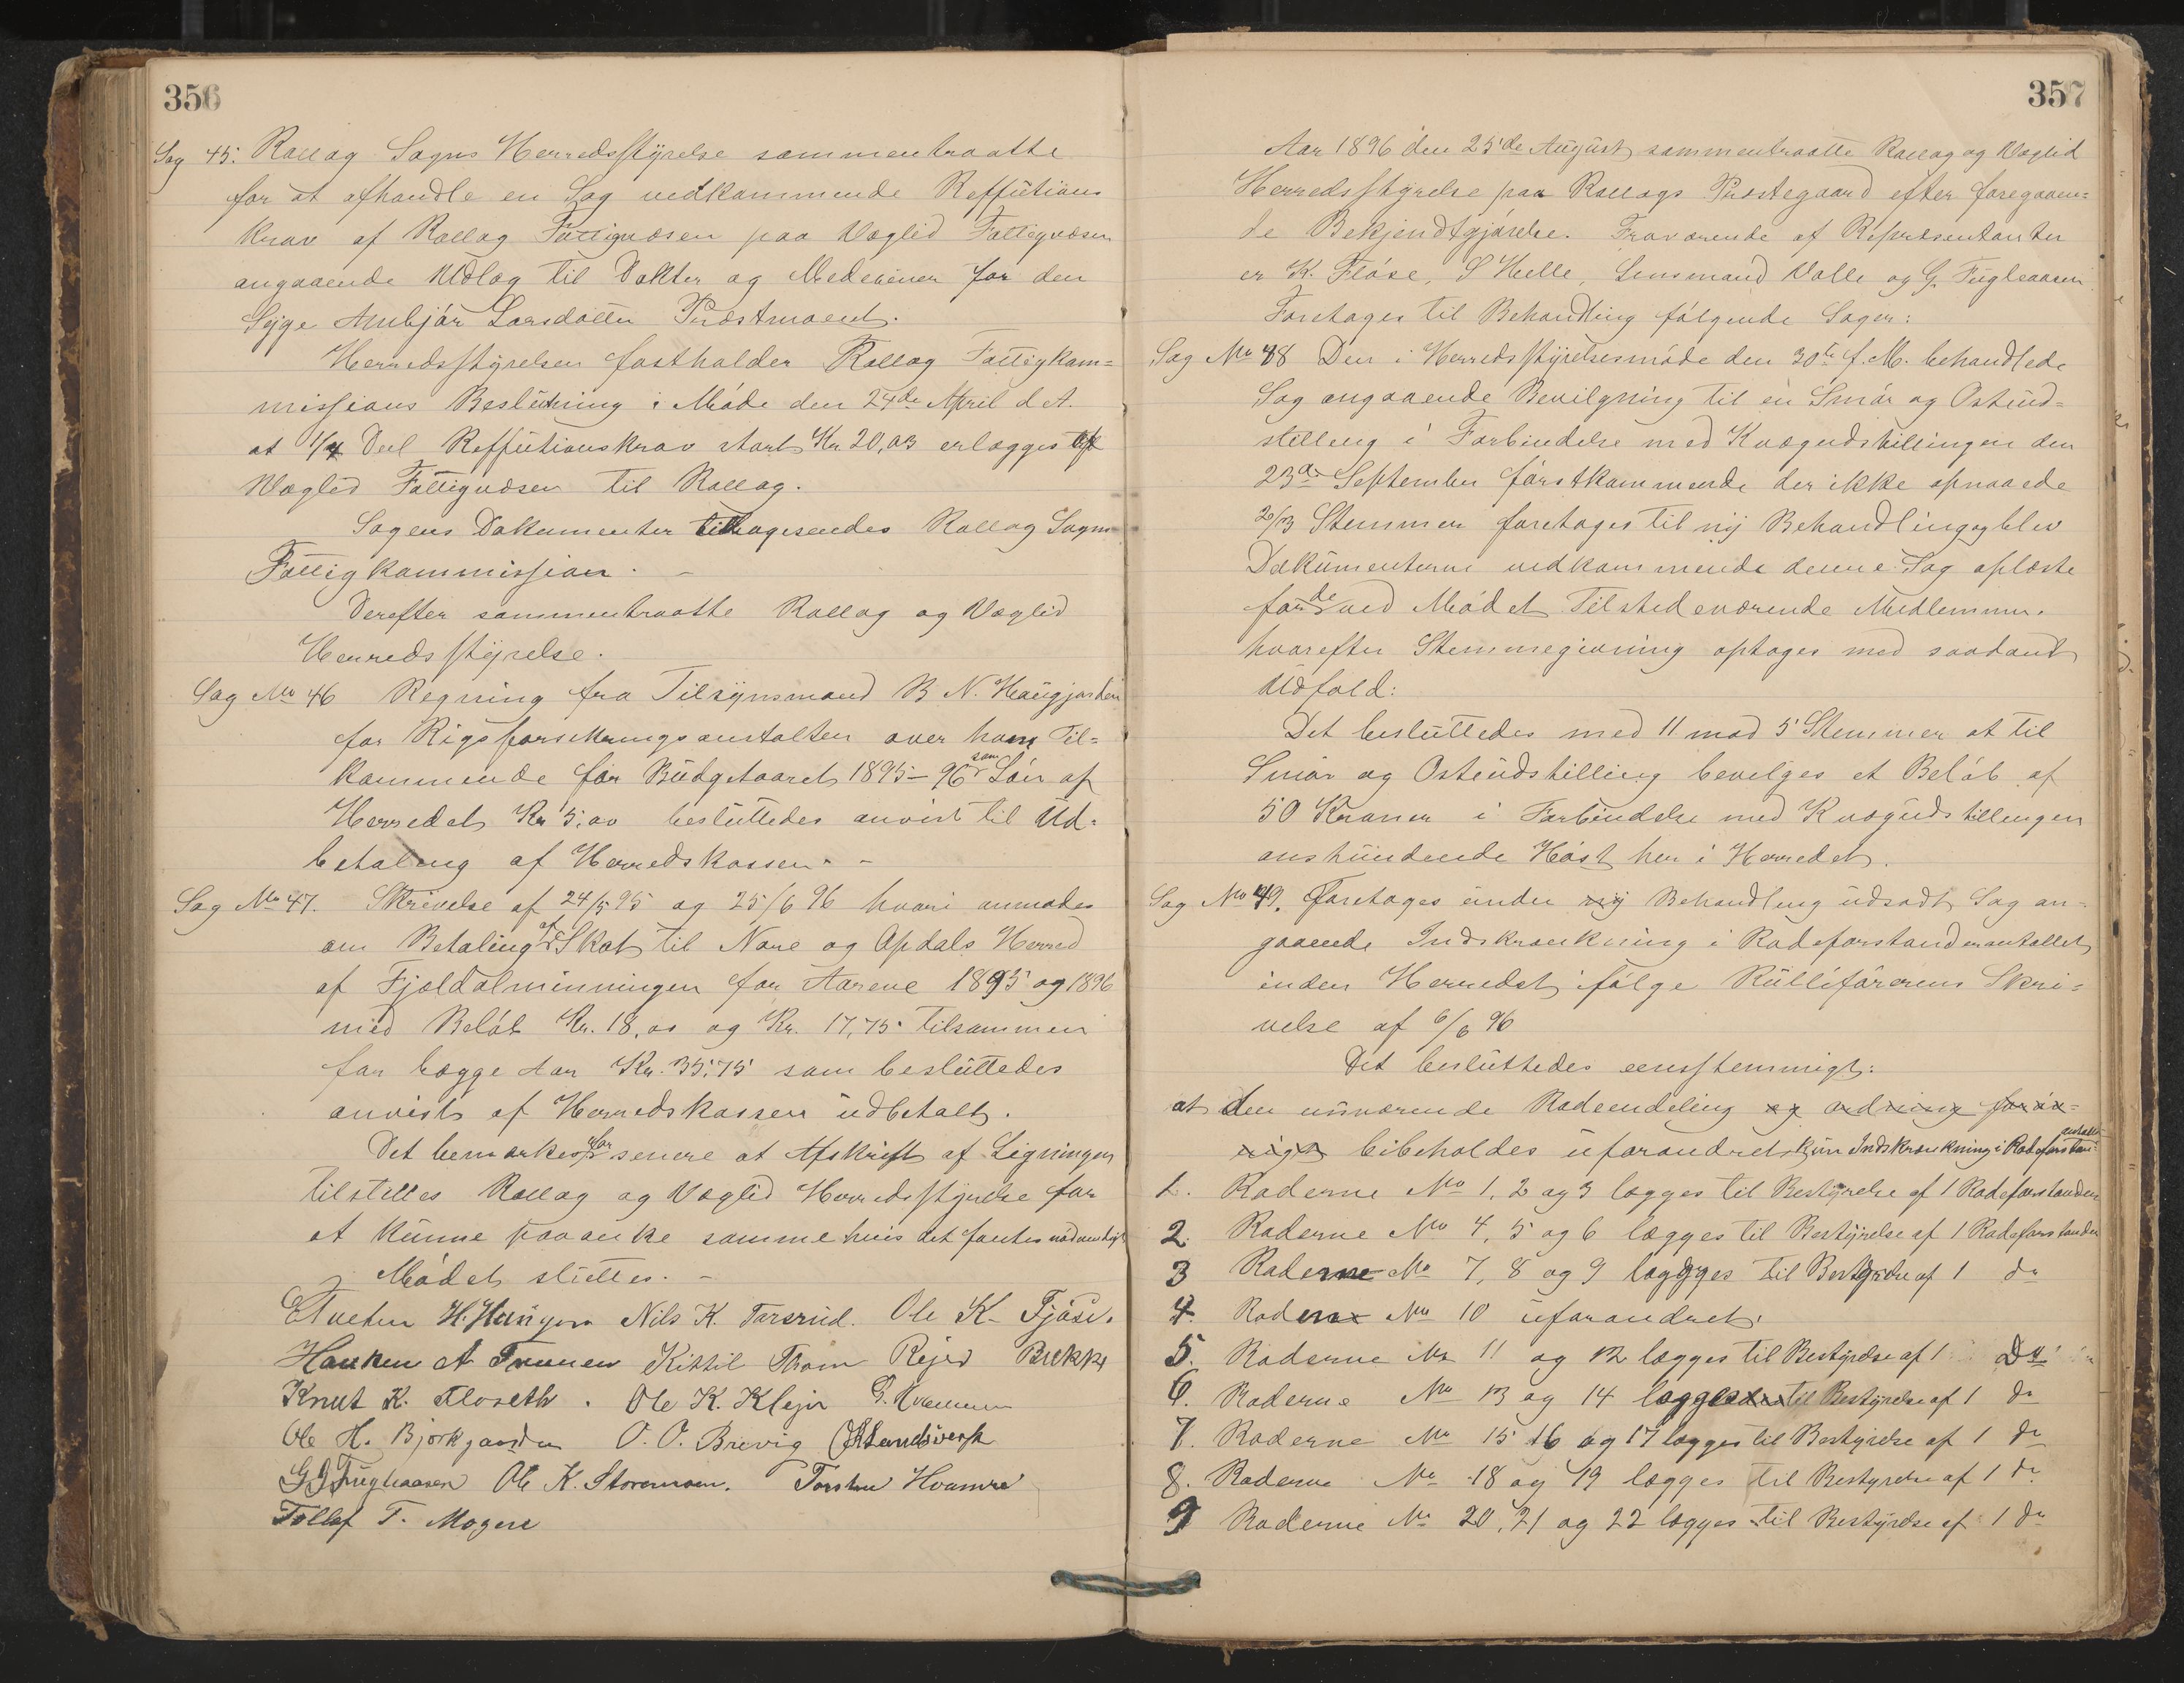 356
Sag 45. Rollag Sogns Herredsstyrelse sammentraatte
for at afhandle en Sag vedkommende Reffutions
krav af Rollag Fattigvæsen paa Væglid Fattigvæsen
angaaende Udlæg til Dokter og Mediciner for den
Syge Anbjør Larsdatter Præstmoen.
Herredsstyrelsen fastholder Rollag Fattigkom=
missions Beslutning i Møde den 24de April d. A.
at 1/4 Del Reffutionskrav stort Kr. 20,03 erlægges af
Væglid Fattigvæsen til Rollag.
Sagens Dokumenter tilbagesendes Rollag Sogns
Fattigkommission. –
Derefter sammentraatte Rollag og Væglid
Herredsstyrelse.
Sag No 46 Regning fra Tilsynsmand B N. Haugjorden
for Rigsforsikringsanstalten over ham Til=
kommende for Budgetaaret 1895–96 som Løn af
Herredet Kr 5,00 besluttedes anvist til Ud=
betaling af Herredskassen. –
Sag No 47. Skrivelse af 24/5 95 og 25/6 96 hvori anmodes
om Betaling af Skat til Nore og Opdals Herred
af Fjeldalminningen for Aarene 1895 og 1896
med Beløb Kr. 18,00 og Kr. 17,75. tilsammen
for begge Aar Kr. 35,75 som besluttedes
anvist af Herredskassen udbetalt.
Det bemærkes for senere at Afskrift af Ligningen
tilstilles Rollag og Væglid Herredsstyrelse for
at kunne paaanke samme hvis det fantes nødvendigt
Mødet sluttes. –
E Tveten H. Haugen Nils K. Torsrud. Ole K. Fjøse.
Haaken A Traaen Kittil Thom Rejer Brekke
Knut K. Floseth. Ole K. Klejv G.
Ole H. Bjørkgaarden O. O. Brevig Landsverk
G J Fuglaasen Ole K. Storemoen. Torsten Hvamre
Tollef T. Mogene
357
Aar 1896 den 25de August sammentraatte Rollag og Væglid
Herredsstyrelse paa Rollags Præstegaard efter foregaaen=
de Bekjendtgjørelse. Fraværende af Repræsentanter
er K. Fløse, S Helle, Lensmand Valle og G. Fuglaasen
Foretages til Behandling følgende Sager:
Sag No 48 Den i Herredsstyrelsesmøde den 30te f. M. behandlede
Sag angaaende Bevilgning til en Smør og Ostud=
stilling i Forbindelse med Kvægudstillingen den
23de September førstkommende der ikke opnaaede
2/3 Stemmer foretages til ny Behandling og blev
Dokumenterne vedkommende denne Sag oplæste
for de ved Mødet Tilstedeværende Medlemmer.
hvorefter Stemmegivning optages med saadant
Udfald:
Det besluttedes med 11 mod 5 Stemmer at til
Smør og Ostudstilling bevilges et Beløb af
50 Kroner i Forbindelse med Kvægudstillingen
anstundende Høst her i Herredet.
Sag No 49. Foretages under ny Behandling udsadt Sag an=
gaaende Indskrænkning i Rodeforstanderantallet
inden Herredet ifølge Rulleførerens Skri=
velse af 6/6 96
Det besluttedes eensstemmigt:
at den nuværende Rodeindeling og ordning forøv=
rigt bibeholdes uforandret kun Indskrænkning i Rodeforstan= antallet
1. Roderne No 1, 2 og 3 lægges til Bestyrelse af 1 Rodeforstander
2. Roderne No 4, 5 og 6 lægges til Bestyrelse af 1 Rodeforstander
3 Roderne No 7, 8 og 9 lægges til Bestyrelse af 1 do
4. Roden No 10 uforandret.
5. Roderne No 11 og 12 lægges til Bestyrelse af 1 Do
6. Roderne No 13 og 14 lægges til Bestyrelse af 1 do
7. Roderne No 15 16 og 17 lægges til Bestyrelse af 1 do
8. Roderne No 18 og 19 lægges til Bestyrelse af 1 do
9 Roderne No 20, 21 og 22 lægges til Bestyrelse af 1 do